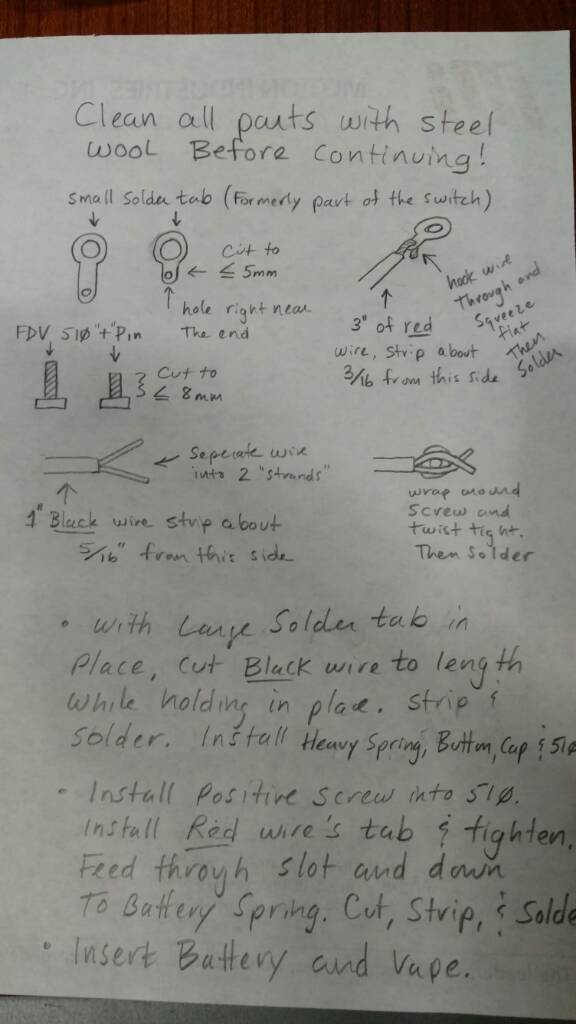 Clean all parts with steel
wool Before continuing!
small solder tab (Formerly part of the switch)
Cut to
≤ 5mm
hole right near
The end
hook wire
Through and
squeeze
flat
Then
Solder
3" of red
wire, strip about
3/16 from this side
FDV 510 "+" Pin
Cut to
≤ 8mm
Seperate wire
into 2 "strands"
1" Black wire strip about
5/16" from this side
wrap around
screw and
twist tight.
Then Solder
• With Large Solder tab in
Place, cut Black wire to length
while holding in place. Strip &
Solder. Install Heavy Spring, Button, Cap & 510
• Install Positive screw into 510.
Install Red wire's tab & tighten.
Feed through slot and down
To Battery Spring. Cut, Strip, & Solde
• Insert Battery and Vape.